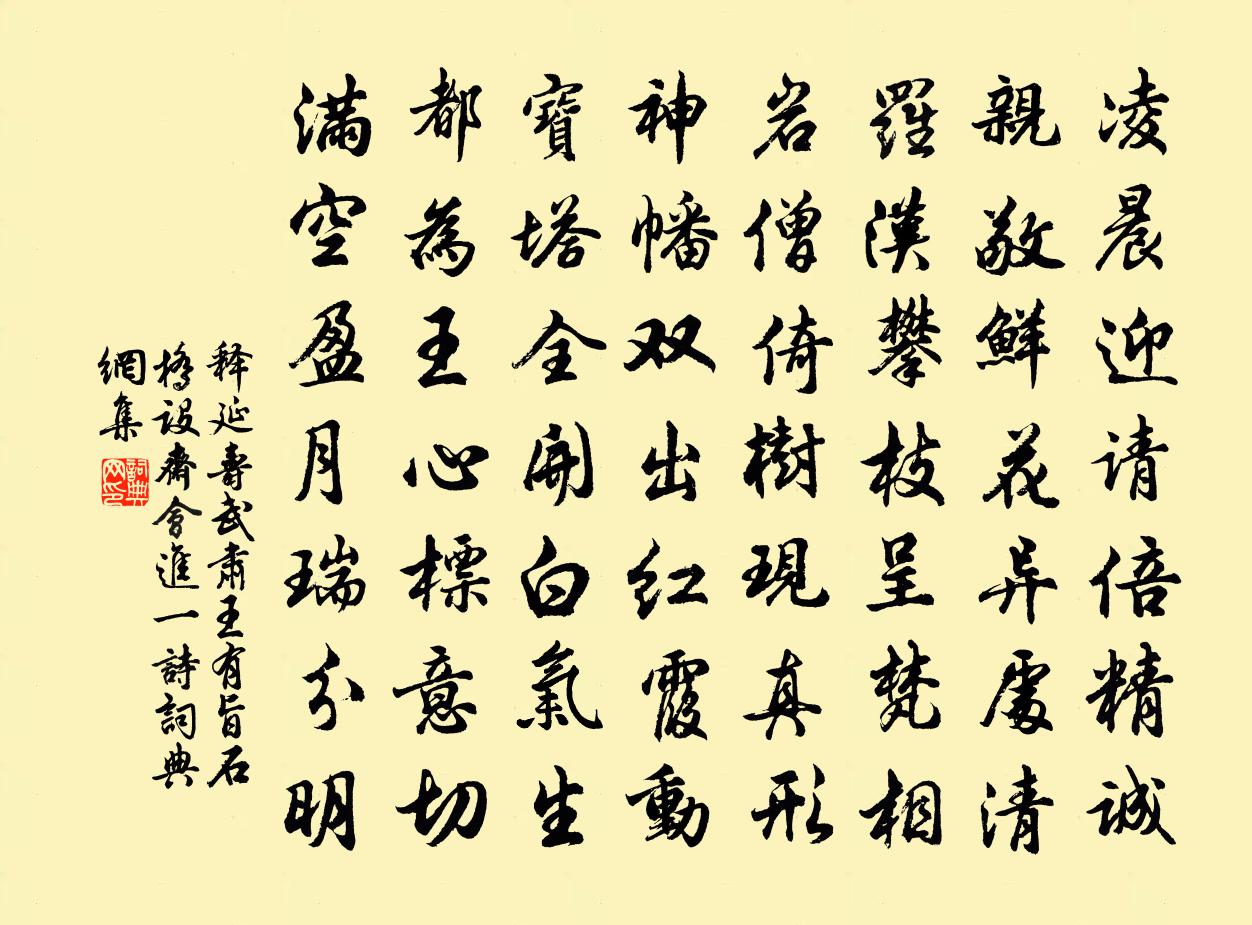 凌晨迎请倍精诚
親敬鮮花异處清
羅漢攀枝呈梵相
岩僧倚樹現真形
神幡双出红霞動
寶塔全開白氣生
都為王心標意切
满空盈月瑞分明
释延壽武肅王有旨石
橋設齋會進一詩詞典
網集
詞典網印